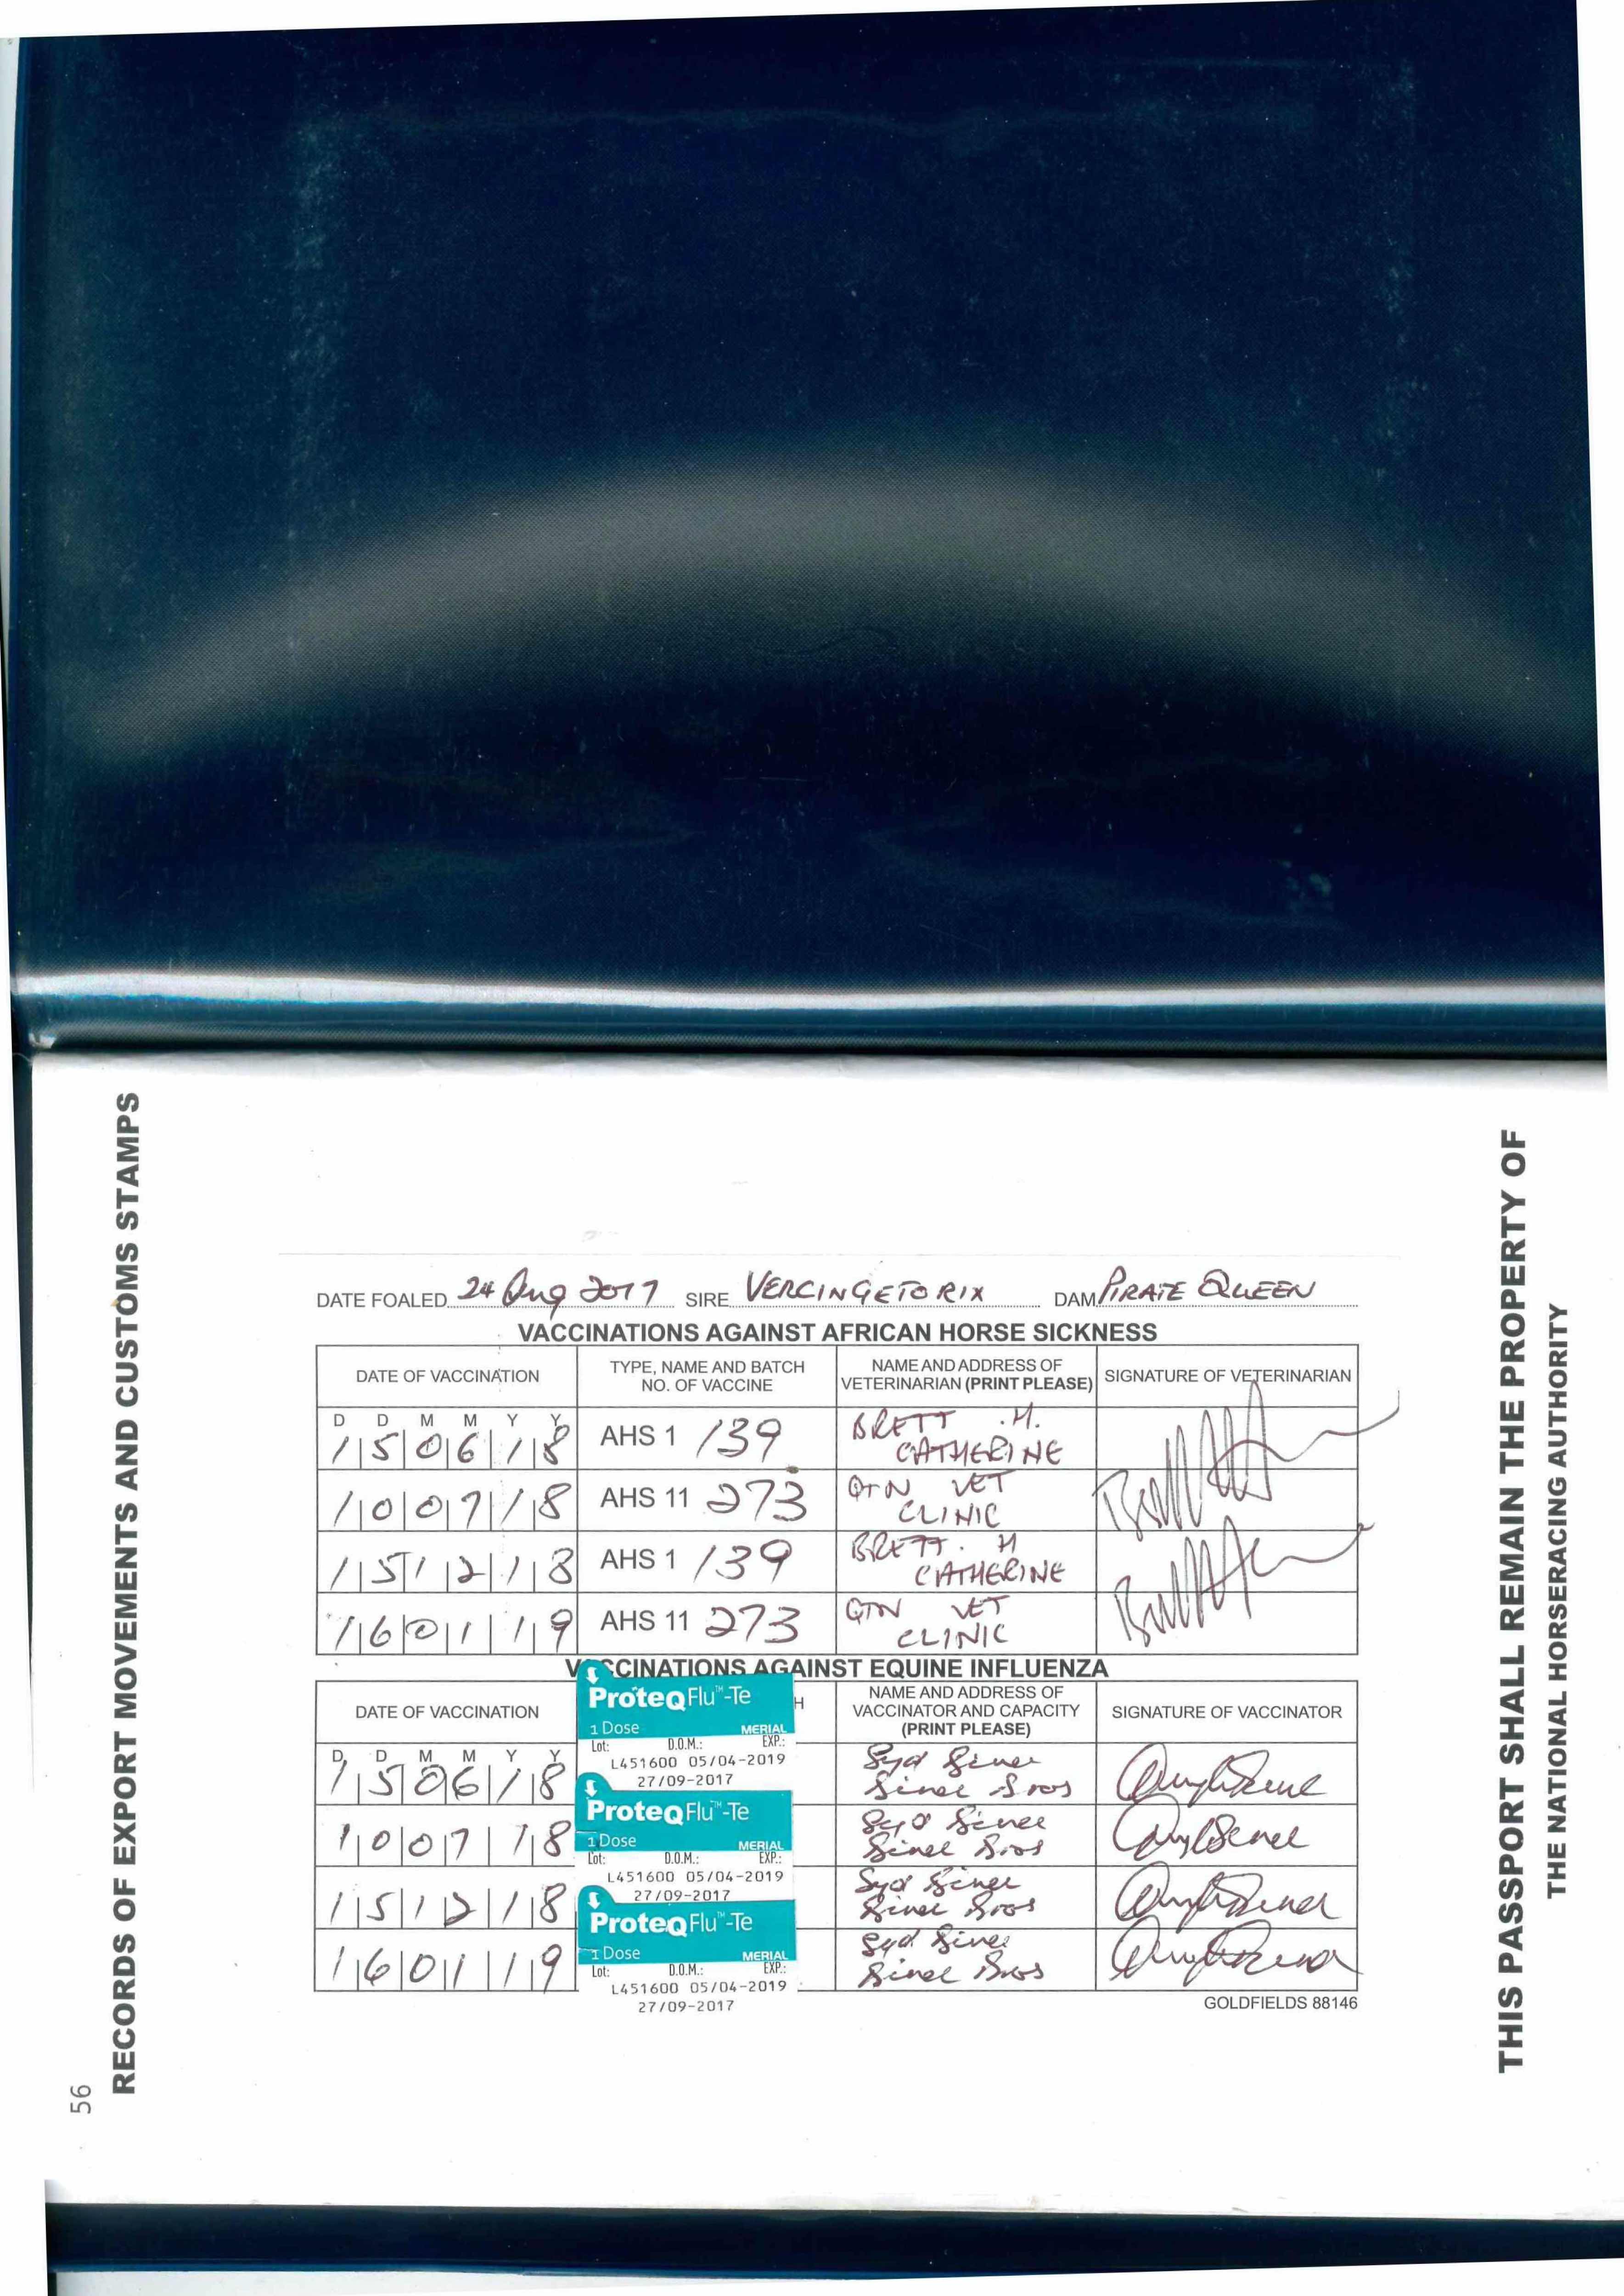 RECORDS OF EXPORT MOVEMENTS AND CUSTOMS STAMPS
56
DATE FOALED 24 Aug 2017 SIRE VERCINGETORIX DAM PIRATE QUEEN
VACCINATIONS AGAINST AFRICAN HORSE SICKNESS
DATE OF VACCINATION
TYPE, NAME AND BATCH NO. OF VACCINE
NAME AND ADDRESS OF VETERINARIAN (PRINT PLEASE)
SIGNATURE OF VETERINARIAN
D D M M Y Y
15 06 18 AHS 1 139 BRETT . H. CATHERINE
10 07 18 AHS 11 273 QTN VET CLINIC
15 12 18 AHS 1 139 BRETT. H CATHERINE
16 01 19 AHS 11 273 QTN VET CLINIC
VACCINATIONS AGAINST EQUINE INFLUENZA
DATE OF VACCINATION
H
NAME AND ADDRESS OF VACCINATOR AND CAPACITY (PRINT PLEASE)
SIGNATURE OF VACCINATOR
D D M M Y Y
15 06 18
10 07 18
15 12 18
16 01 19
ProteqFlu™-Te
1 Dose MERIAL
Lot: D.O.M.: EXP.:
L451600 05/04-2019
27/09-2017
ProteqFlu™-Te
1 Dose MERIAL
Lot: D.O.M.: EXP.:
L451600 05/04-2019
27/09-2017
ProteqFlu™-Te
1 Dose MERIAL
Lot: D.O.M.: EXP.:
L451600 05/04-2019
27/09-2017
GOLDFIELDS 88146
THIS PASSPORT SHALL REMAIN THE PROPERTY OF
THE NATIONAL HORSERACING AUTHORITY